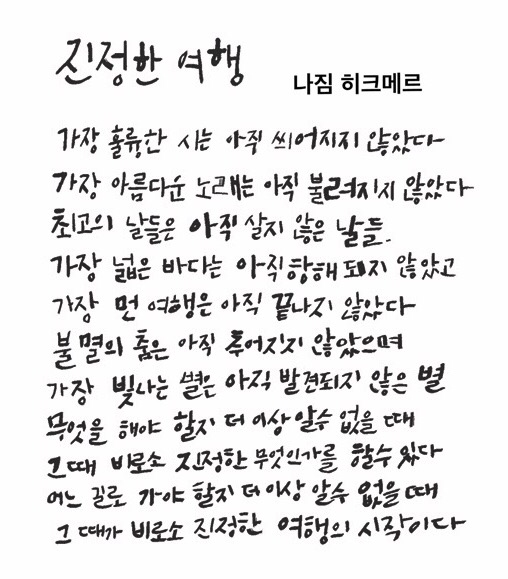 진정한 여행
나짐 히크메르
가장 훌륭한 시는 아직 씌어지지 않았다
가장 아름다운 노래는 아직 불려지지 않았다
최고의 날들은 아직 살지 않은 날들.
가장 넓은 바다는 아직 항해 되지 않았고
가장 먼 여행은 아직 끝나지 않았다
불멸의 춤은 아직 추어지지 않았으며
가장 빛나는 별은 아직 발견되지 않은 별
무엇을 해야 할지 더 이상 알수 없을 때
그때 비로소 진정한 무엇인가를 할수 있다
어느 길로 가야 할지 더 이상 알수 없을 때
그 때가 비로소 진정한 여행의 시작이다